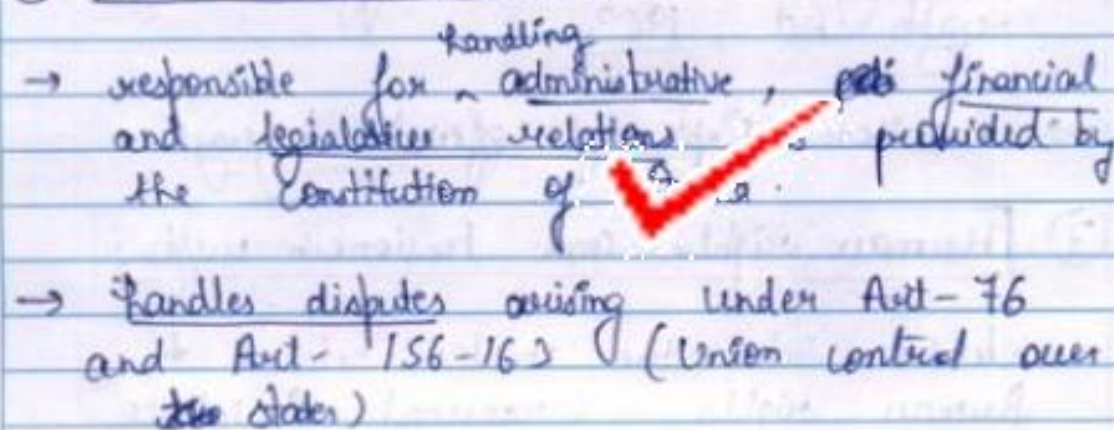 handling
→ responsible for ^ administrative, financial
and legislative relations provided by
the Constitution of
→ handles disputes arising under Art-76
and Art- 156-163 (Union control over
states)